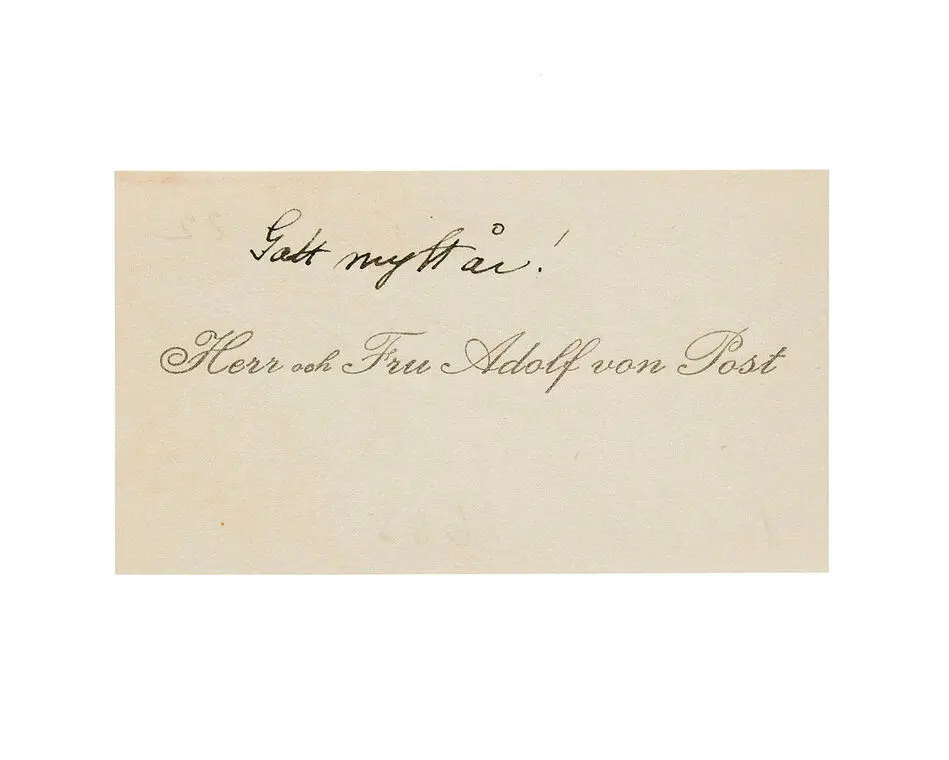 Gott nytt år!
Herr och Fru Adolf von Post